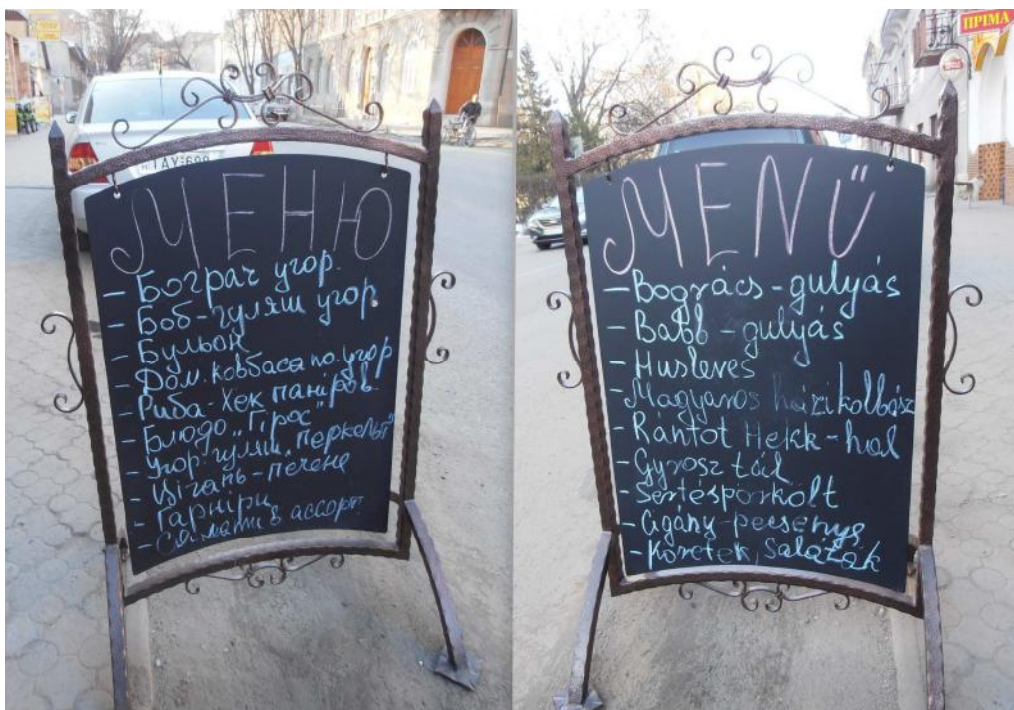 МЕНЮ
- Бограч угор.
- Боб-гуляш угор.
- Бульон
- Дом. ковбаса по. угор
- Риба-Хек паніров.
- Блюдо "Гірос"
- Угор. гуляш "перкельт"
- Ціган-печене
- Гарніри
- Салати в ассорт.
ПРІМА
MENÜ
- Bogrács-gulyás
- Babb-gulyás
- Husleves
- Magyaros házikolbász
- Rántot Hekk-hal
- Gyrosz tál
- Sertéspörkölt
- Cigány-pecsenye
- Köretek, saláták